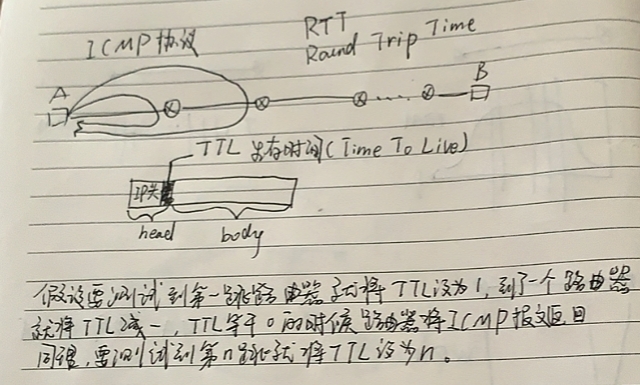 ICMP协议
RTT
Round Trip Time
A
B
TTL 生存时间(Time To Live)
IP头
head
body
假设要测试到第一跳路由器就将TTL设为1,到了一个路由器
就将TTL减一,TTL等于0的时候路由器将ICMP报文返回
同理,要测试到第n跳就将TTL设为n。